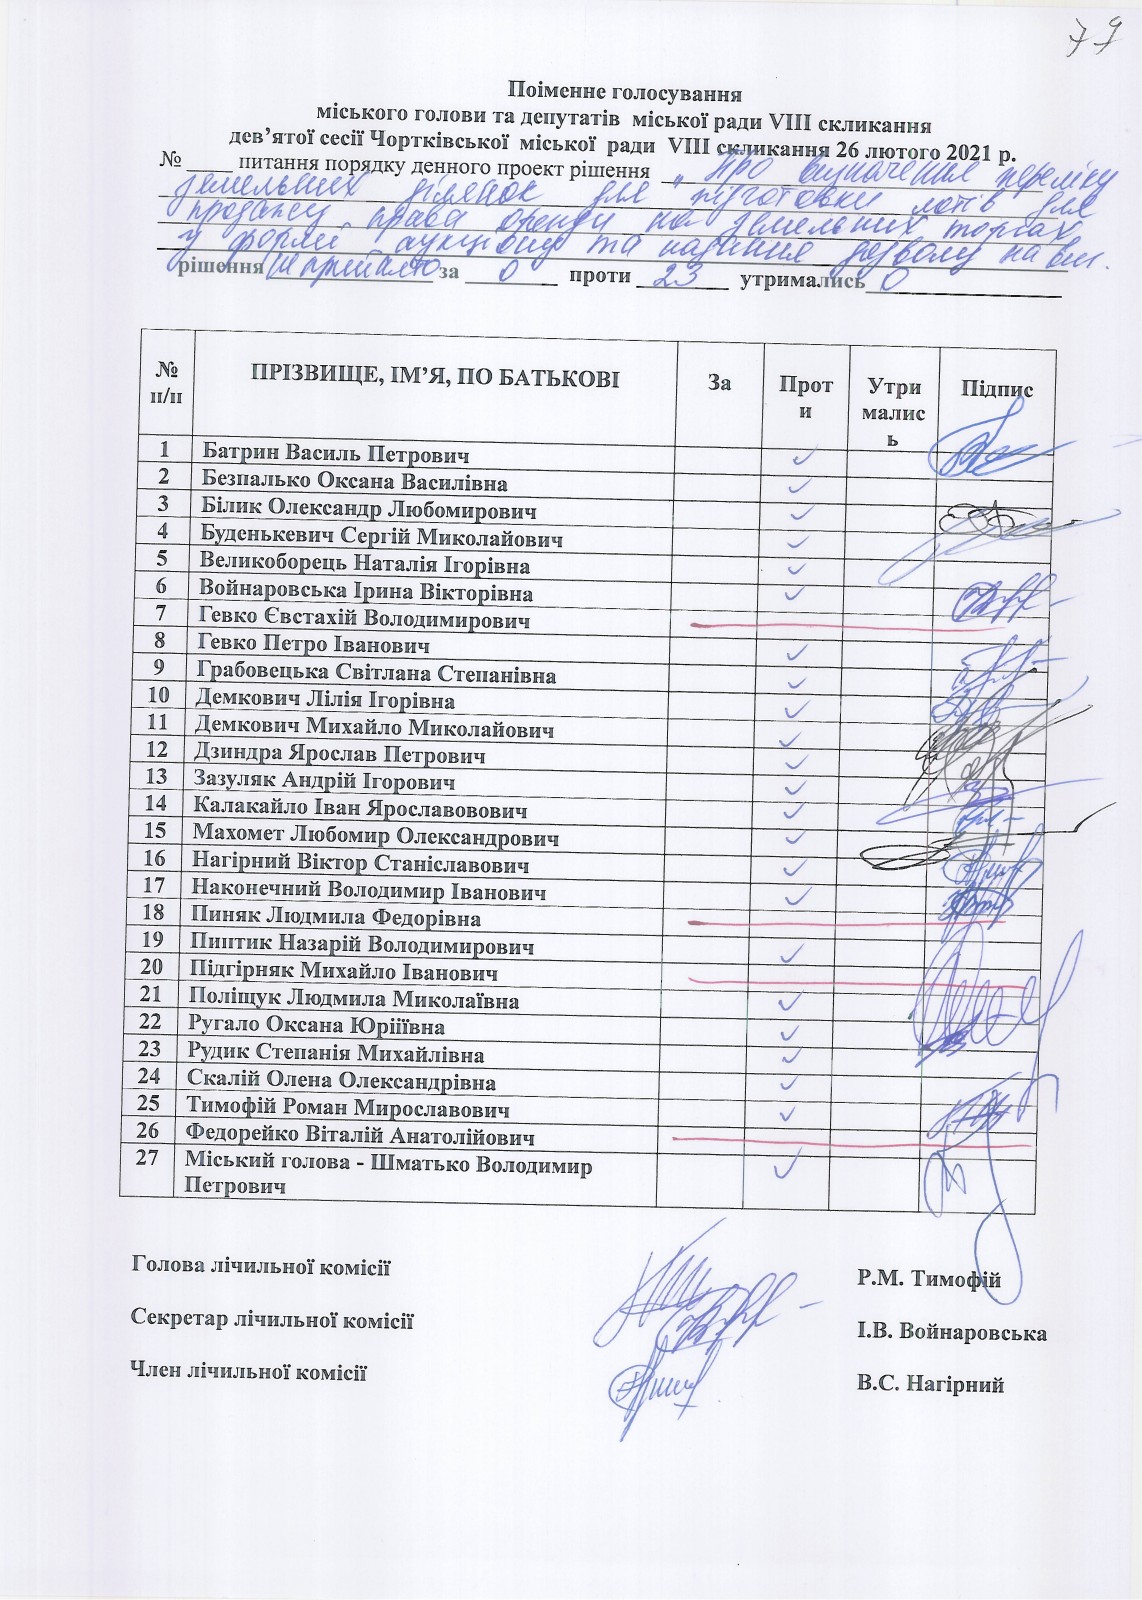 79
Поіменне голосування
міського голови та депутатів міської ради VIII скликання
дев’ятої сесії Чортківської міської ради VIII скликання 26 лютого 2021 р.
№ ____ питання порядку денного проект рішення „Про визначення переліку
земельних ділянок для підготовки лотів для
продажу права оренди на земельних торгах
у формі аукціону та надання дозволу на виг.
рішення не прийнято за 0 проти 23 утримались 0
№ п/п ПРІЗВИЩЕ, ІМ’Я, ПО БАТЬКОВІ За Проти Утрималися Підпис
1 Батрин Василь Петрович ✓
2 Безпалько Оксана Василівна ✓
3 Білик Олександр Любомирович ✓
4 Буденькевич Сергій Миколайович ✓
5 Великоборець Наталія Ігорівна ✓
6 Войнаровська Ірина Вікторівна ✓
7 Гевко Євстахій Володимирович
8 Гевко Петро Іванович ✓
9 Грабовецька Світлана Степанівна ✓
10 Демкович Лілія Ігорівна ✓
11 Демкович Михайло Миколайович ✓
12 Дзиндра Ярослав Петрович ✓
13 Зазуляк Андрій Ігорович ✓
14 Калакайло Іван Ярославовович ✓
15 Махомет Любомир Олександрович ✓
16 Нагірний Віктор Станіславович ✓
17 Наконечний Володимир Іванович ✓
18 Пиняк Людмила Федорівна
19 Пиптик Назарій Володимирович ✓
20 Підгірняк Михайло Іванович
21 Поліщук Людмила Миколаївна ✓
22 Ругало Оксана Юріїївна ✓
23 Рудик Степанія Михайлівна ✓
24 Скалій Олена Олександрівна ✓
25 Тимофій Роман Мирославович ✓
26 Федорейко Віталій Анатолійович
27 Міський голова - Шматько Володимир ✓
Петрович
Голова лічильної комісії Р.М. Тимофій
Секретар лічильної комісії І.В. Войнаровська
Член лічильної комісії В.С. Нагірний